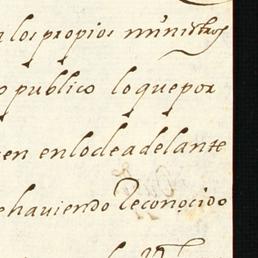 los propios ministros
publico lo que por
en en lo de adelante
haviendo Reconocido